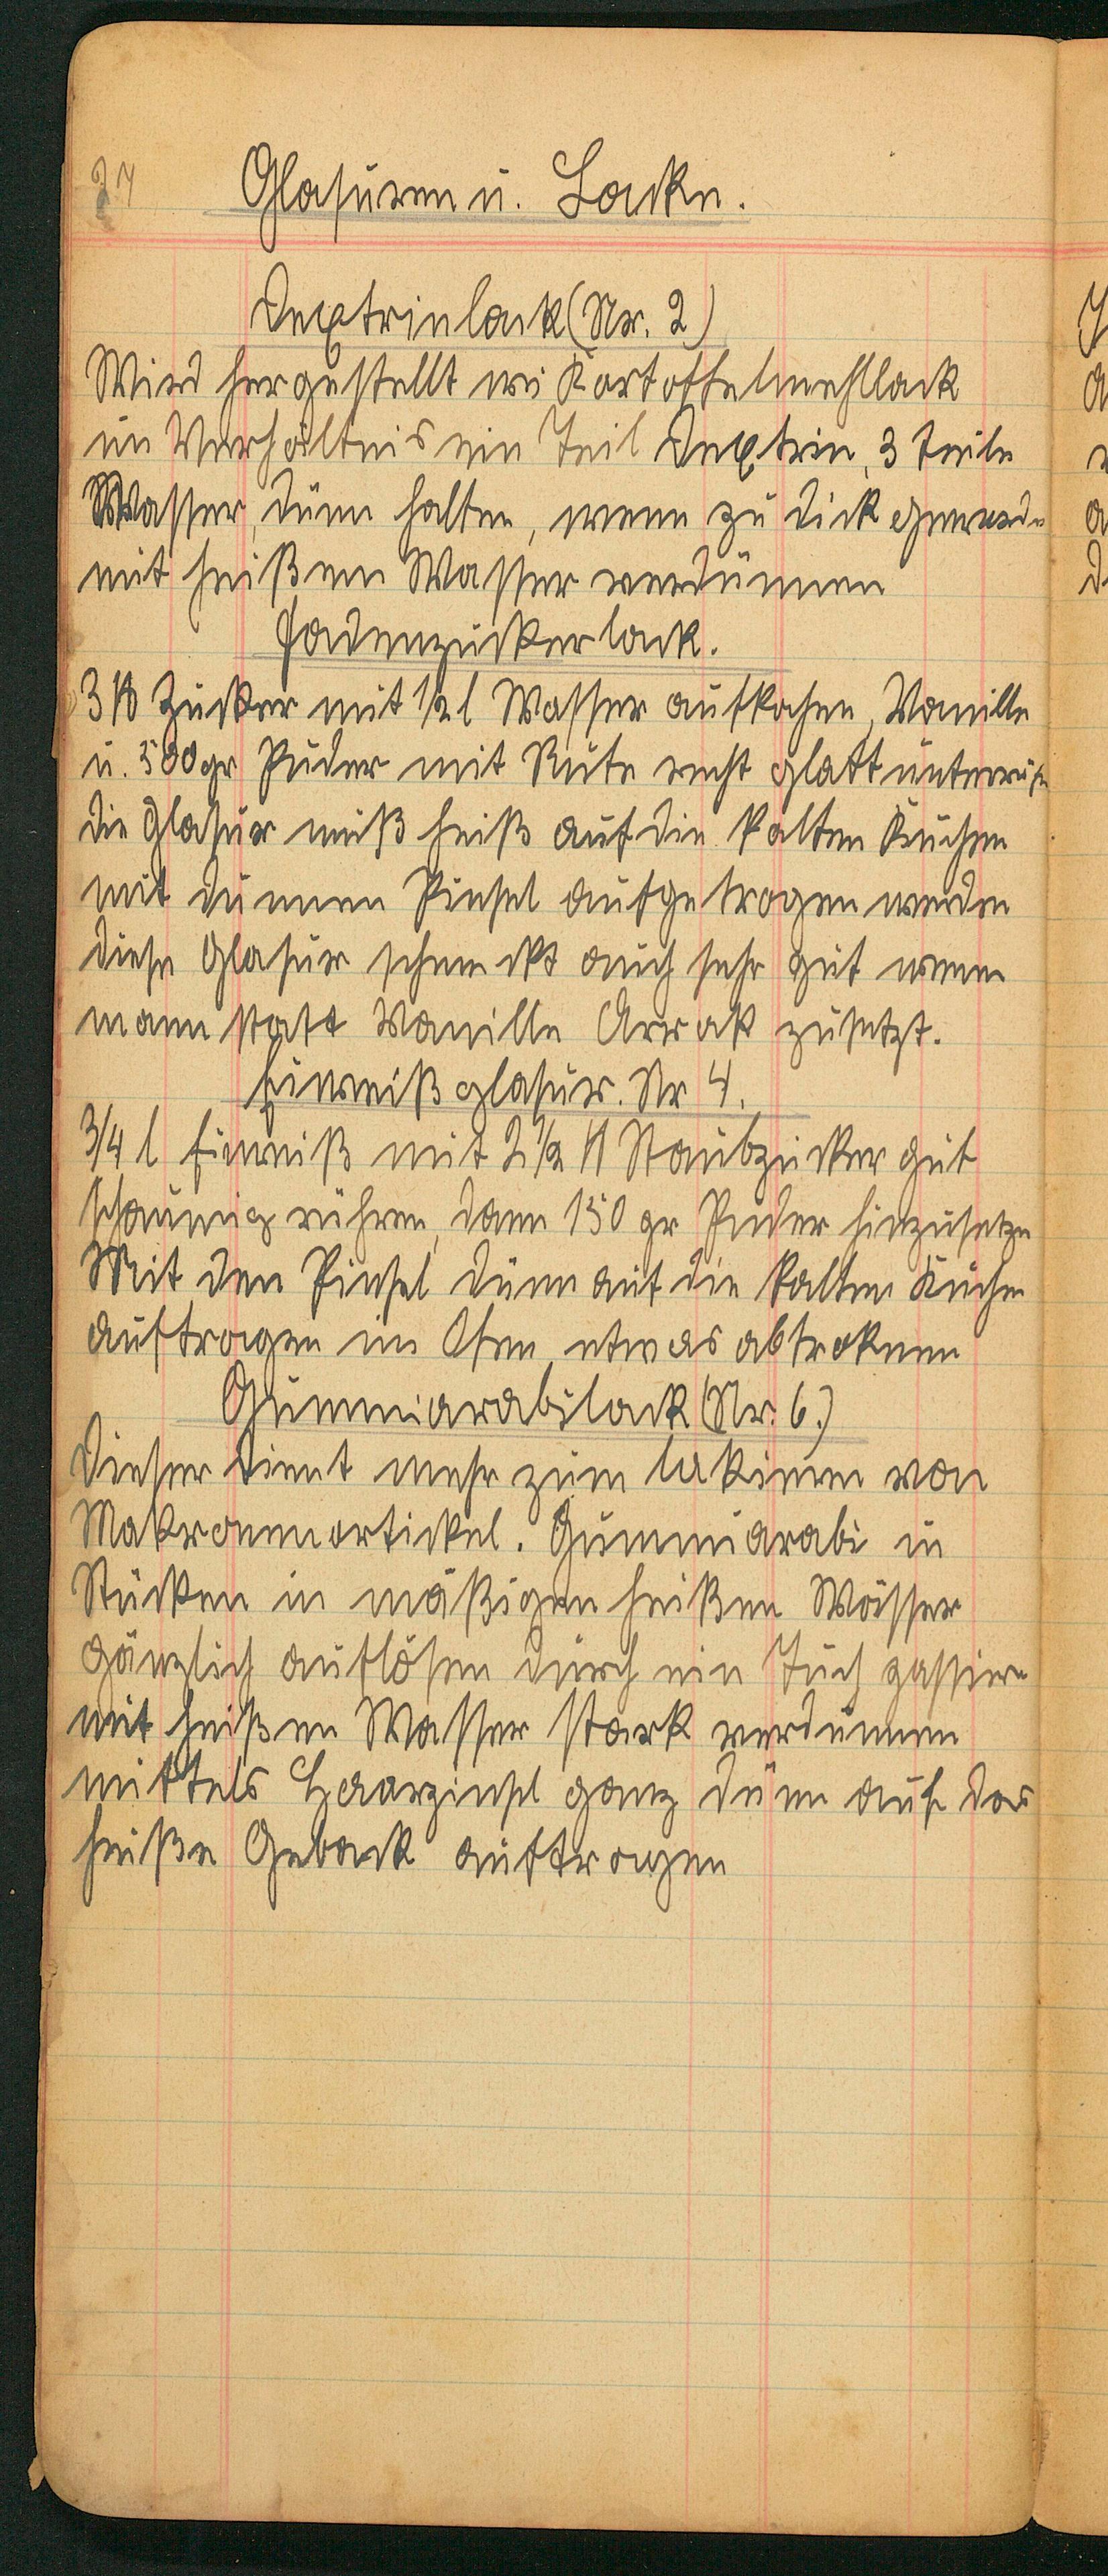 27 Glasuren u. Lacke.
Dextrinlack (Nr. 2)
Wird hergestellt wie Kartoffelmehllack
im Verhältnis ein Teil Dextrin, 3 Teile
Wasser, dünn halten, wenn zu dick geworde
mit heißem Wasser verdünnen
Fadenzuckerlack.
3 ℔ Zucker mit 1/2 l Wasser aufkochen, Vanille
u. 500 gr Puder mit Rute recht glatt unterrüh
die Glasur muß heiß auf die kalten Kuchen
mit dünnen Pinsel aufgetragen werden
diese Glasur schmeckt auch sehr gut wenn
mann statt Vanille Arrak zusetzt.
Eiweißglasur. Nr 4.
3/4 l Eiweiß mit 2 1/2 ℔ Staubzucker gut
schaumig rühren, dann 150 gr Puder hinzusetze
Mit den Pinsel dünn auf die kalten Kuchen
auftragen im Ofen etwas abtroknen
Gummiarabilack (Nr. 6.)
Dieser dient mehr zum lakieren von
Makronenartickel. Gummiarabi in
Stücken in mäßigen heißen Wasser
gänzlich auflösen durch ein Tuch passiere
mit heißen Wasser stark verdünnen
mittels Haarpinsel ganz dünn auf das
heiße Geback auftragen